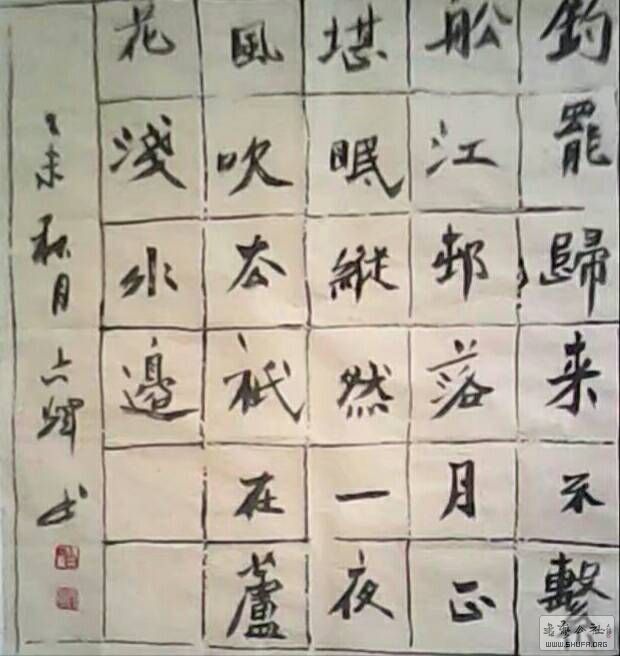 釣罷歸来不繫
船江邨落月正
堪眠縱然一夜
風吹去衹在蘆
花淺水邊
乙未秋月
书
书法公社
WWW.SHUFA.ORG